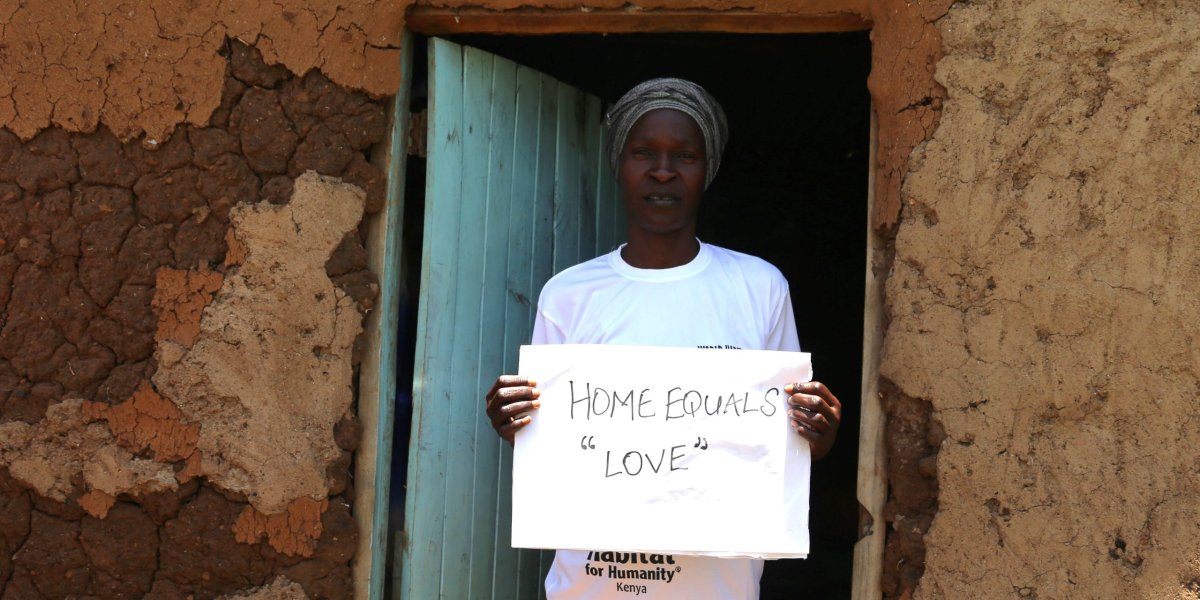 HOME EQUALS
"LOVE"
Habitat
for Humanity®
Kenya